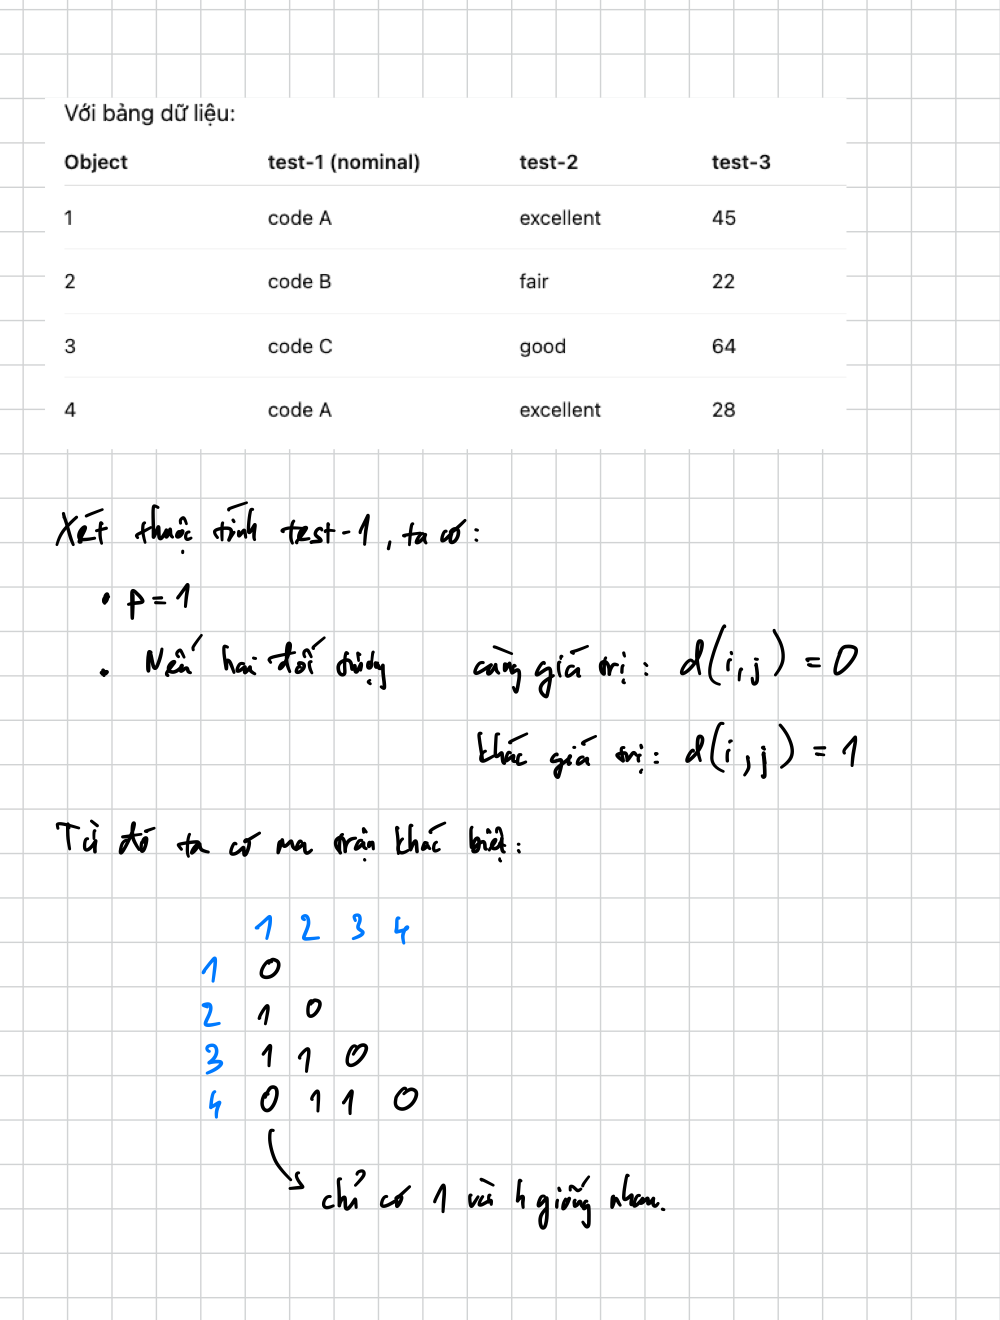 Với bảng dữ liệu:
Object test-1 (nominal) test-2 test-3
1 code A excellent 45
2 code B fair 22
3 code C good 64
4 code A excellent 28
Xét thuộc tính test-1, ta có:
• p = 1
• Nếu hai đối tượng cùng giá trị: d(i,j) = 0
khác giá trị: d(i,j) = 1
Từ đó ta có ma trận khác biệt:
1 2 3 4
1 0
2 1 0
3 1 1 0
4 0 1 1 0
chỉ có 1 và 4 giống nhau.